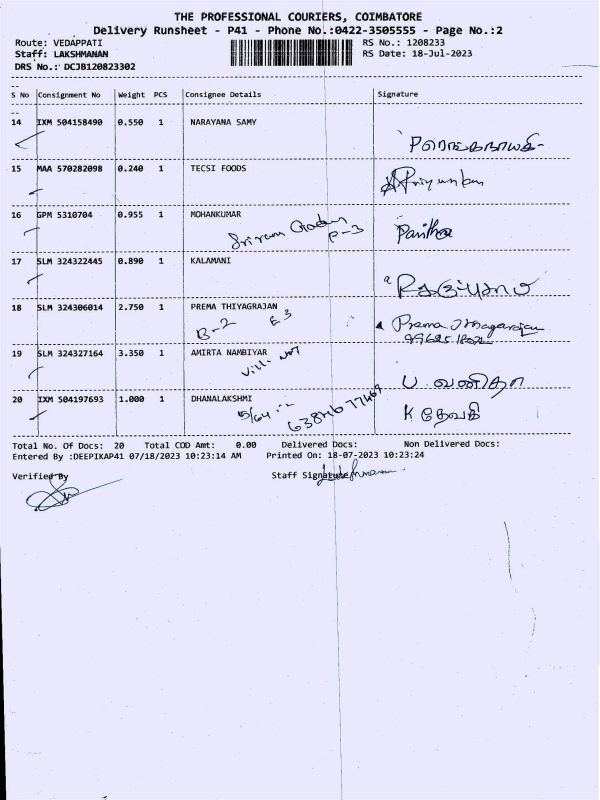 THE PROFESSIONAL COURIERS, COIMBATORE
Delivery Runsheet - P41 - Phone No.:0422-3505555 - Page No.:2
Route: VEDAPPATI RS No.: 1208233
Staff: LAKSHMANAN RS Date: 18-Jul-2023
DRS No.: DCJB120823302
S No Consignment No Weight PCS Consignee Details Signature
14 IXM 504158490 0.550 1 NARAYANA SAMY
15 MAA 570282098 0.240 1 TECSI FOODS
16 GPM 5310704 0.955 1 MOHANKUMAR
P-3 Pavithra
17 SLM 324322445 0.890 1 KALAMANI
18 SLM 324306014 2.750 1 PREMA THIYAGRAJAN
B-2 E3 Prema Thiagarajan
19 SLM 324327164 3.350 1 AMIRTA NAMBIYAR
ப. வனிதா
20 IXM 504197693 1.000 1 DHANALAKSHMI
K தேவகி
Total No. Of Docs: 20 Total COD Amt: 0.00 Delivered Docs: Non Delivered Docs:
Entered By :DEEPIKAP41 07/18/2023 10:23:14 AM Printed On: 18-07-2023 10:23:24
Verified By Staff Signature